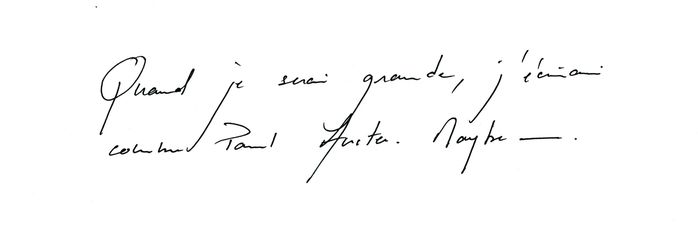 Quand je serai grande, j'écrirai
comme Paul Auster. Maybe —.